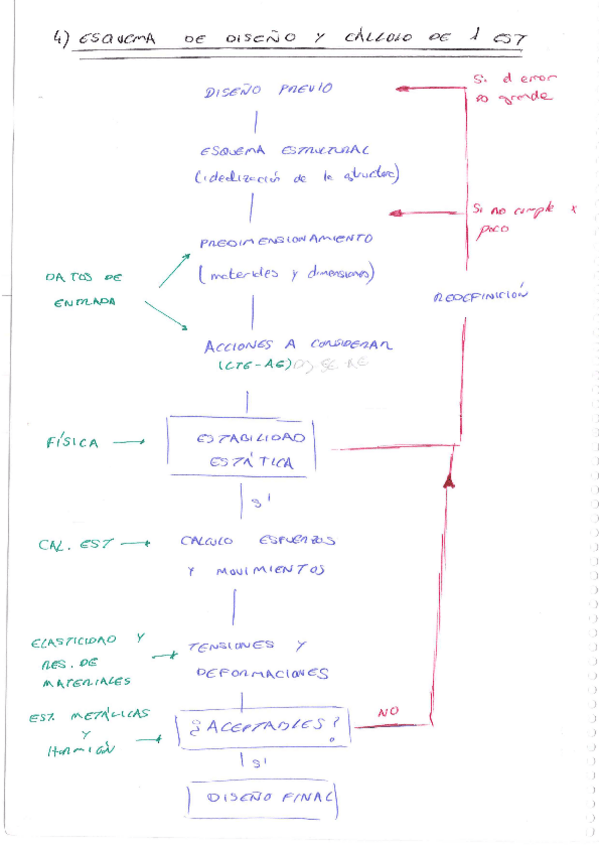 4) ESQUEMA DE DISEÑO Y CÁLCULO DE 1 EST
DISEÑO PREVIO
Si el error
es grande
ESQUEMA ESTRUCTURAL
(idealización de la estructura)
Si no cumple x
poco
PREDIMENSIONAMIENTO
(materiales y dimensiones)
DATOS DE
ENTRADA
REDEFINICIÓN
ACCIONES A CONSIDERAR
(CTE-AE) DB SE AE
FÍSICA
ESTABILIDAD
ESTÁTICA
SÍ
CAL. EST
CALCULO ESFUERZOS
Y MOVIMIENTOS
ELASTICIDAD Y
RES. DE
MATERIALES
TENSIONES Y
DEFORMACIONES
EST. METÁLICAS
Y
HORMIGÓN
¿ACEPTABLES?
NO
SÍ
DISEÑO FINAL